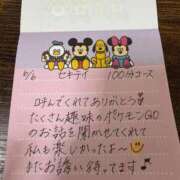 5/6 セキテイ 100分コース
呼んでくれてありがとう
たくさん趣味のポケモンGO
のお話を聞かせてくれて
私も楽しかったよ〜
またお誘い待ってます♪